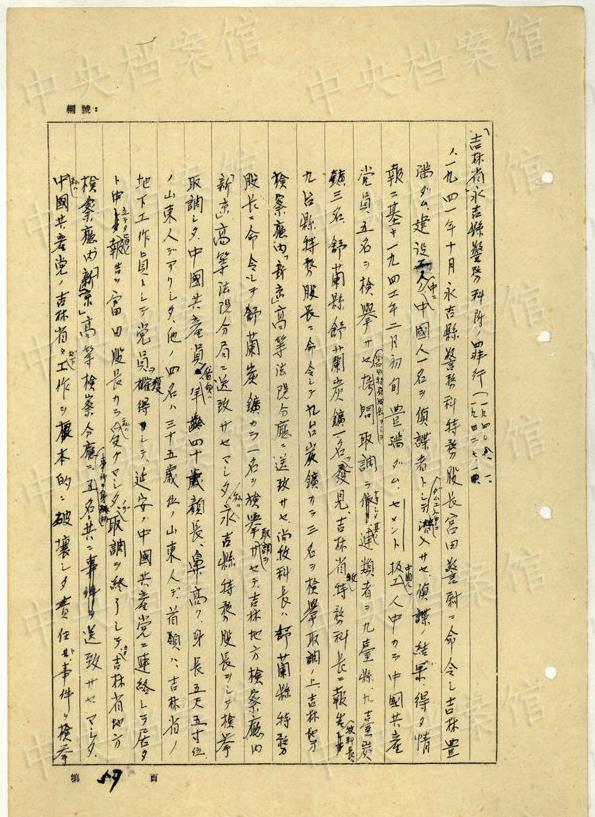 欄號：
吉林省永吉縣警務科所ノ罪行（一九四〇、六、一 一九四二、七、
ハ一九四一年十月永吉縣警務科特務股長宮田警尉ニ命令シ吉林豊
満ダム建設工人中ノ中國人一名ヲ偵諜者トシテ潜入サセ偵諜ノ結果、得タ情
報ニ基キ一九四二年二月初旬豊満ダム、セメント扱工人中カラ中國共産
党員、五名ヲ検挙サセ拷問取調ヲ 連類者ヲ九台縣、九台炭
鑛三名、舒蘭縣舒蘭炭鑛一名ヲ発見、吉林省特務科長ニ報告
九台縣特務股長ニ命令シテ九台炭鑛カラ三名ヲ検挙取調ノ上吉林地方
検察廳内「新京」高等法院分廳ニ送致サセ 科長ハ舒蘭縣特務
股長ニ命令シテ舒蘭炭鑛カラ一名ヲ検挙サセテ取調ヲ吉林地方検察廳内
「新京」高等法院分局ニ送致サセマシタ、永吉縣特務股長ヲシテ検挙
取調シタ、中國共産員ハ年齢四十歳顔長、鼻高ク、身長五尺五寸位
ノ山東人デアリマシタ、他ノ四名ハ三十五歳位ノ山東人デ首領ハ、吉林省ノ
地下工作員トシテ党員ヲ獲得シテ、延安ノ中國共産党ニ連絡シテ居タ
ト申ス報告ヲ富田股長カラ受ケマシタ、取調ヲ終了シテ吉林省地方
検察廳内「新京」高等検察分廳ニ五名共ニ事件ヲ送致サセマシタ、
中國共産党ノ吉林省地下工作ヲ根本的ニ破壊シタ責任ガ、事件ヲ検挙
第 59 頁
中央档案馆